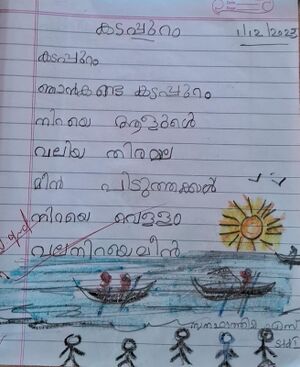 കടപ്പുറം
1/12/2023
കടപ്പുറം
ഞാൻകണ്ട കടപ്പുറം
നിറയെ ആളുകൾ
വലിയ തിരമാല
മീൻ പിടുത്തക്കാർ
നിറയെ വെള്ളം
വലനിറയെമീൻ